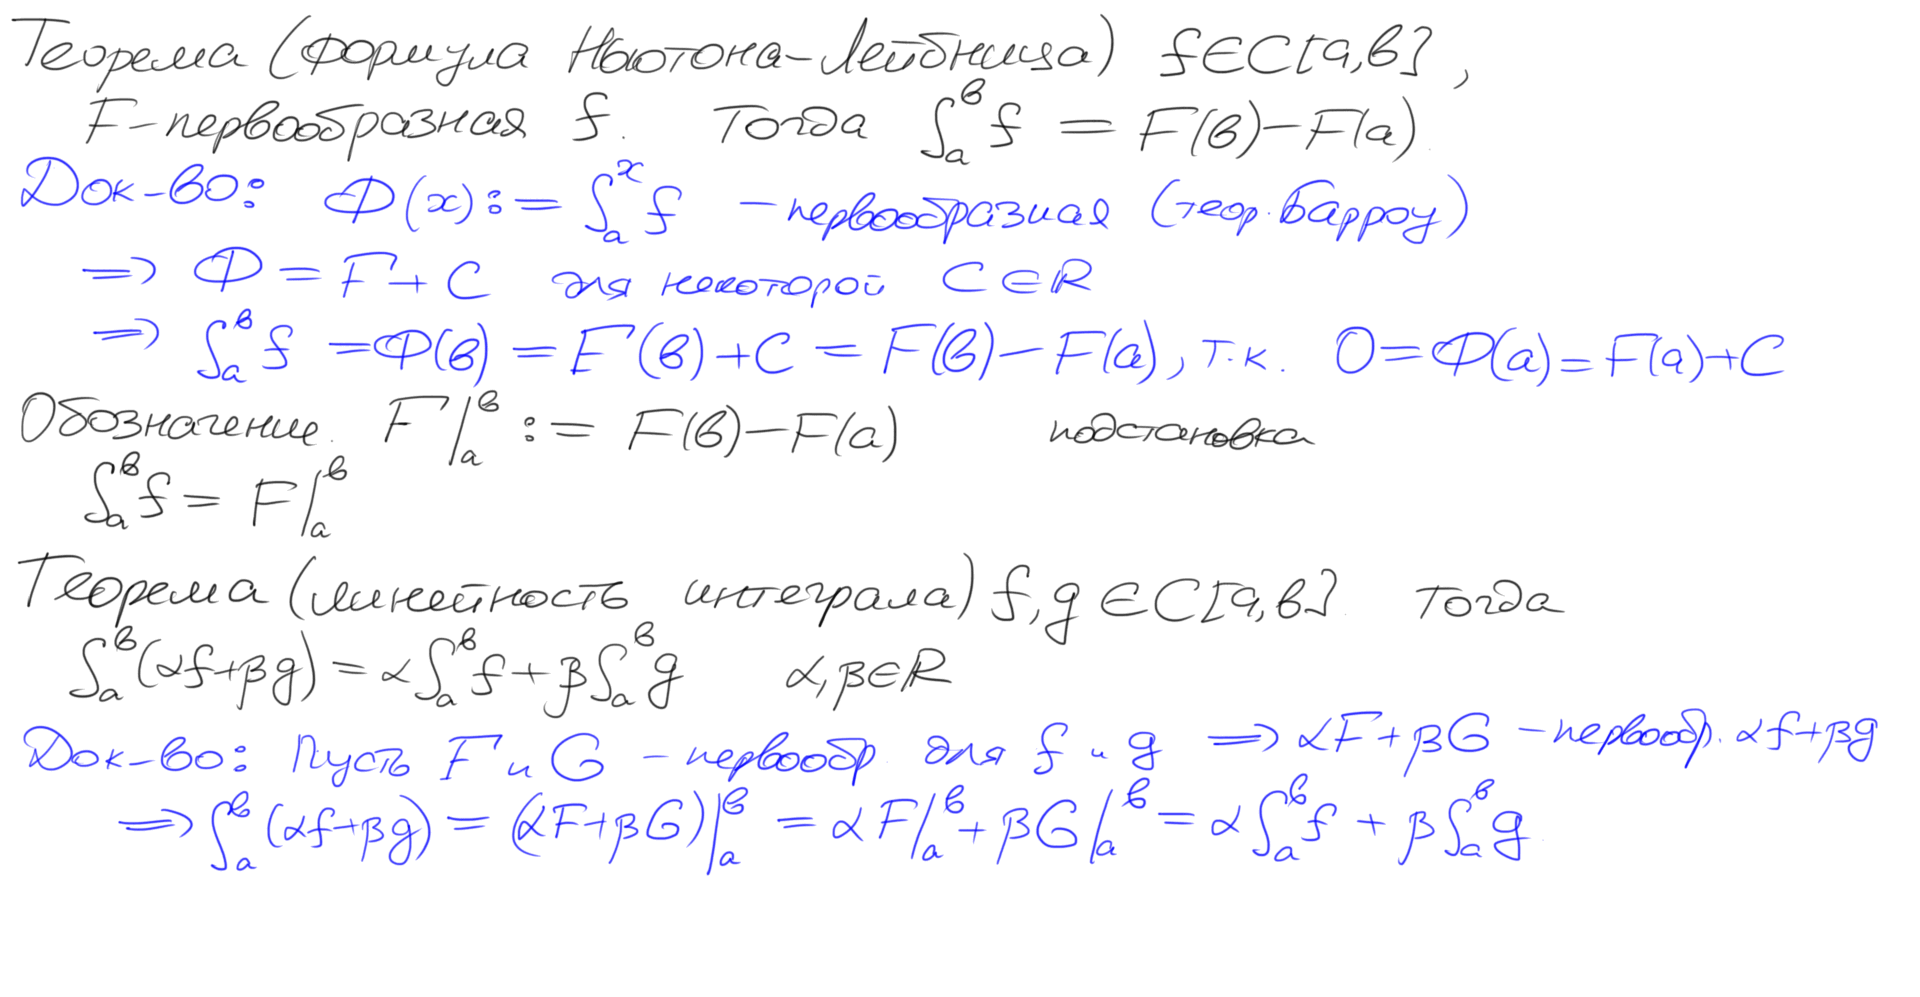 Теорема (Формула Ньютона-Лейбница) f∈C[a,b],
F-первообразная f. Тогда ∫_a^b f = F(b)-F(a).
Док-во: Φ(x):=∫_a^x f - первообразная (теор. Барроу)
⇒ Φ=F+C для некоторой C∈R
⇒ ∫_a^b f =Φ(b)=F(b)+C=F(b)-F(a), т.к. 0=Φ(a)=F(a)+C
Обозначение. F|_a^b := F(b)-F(a) подстановка
∫_a^b f = F|_a^b
Теорема (линейность интеграла) f,g∈C[a,b]. Тогда
∫_a^b (αf+βg)=α∫_a^b f+β∫_a^b g α,β∈R
Док-во: Пусть F и G - первообр. для f и g ⇒ αF+βG - первообр. αf+βg
⇒ ∫_a^b (αf+βg) = (αF+βG)|_a^b = αF|_a^b + βG|_a^b = α∫_a^b f + β∫_a^b g.